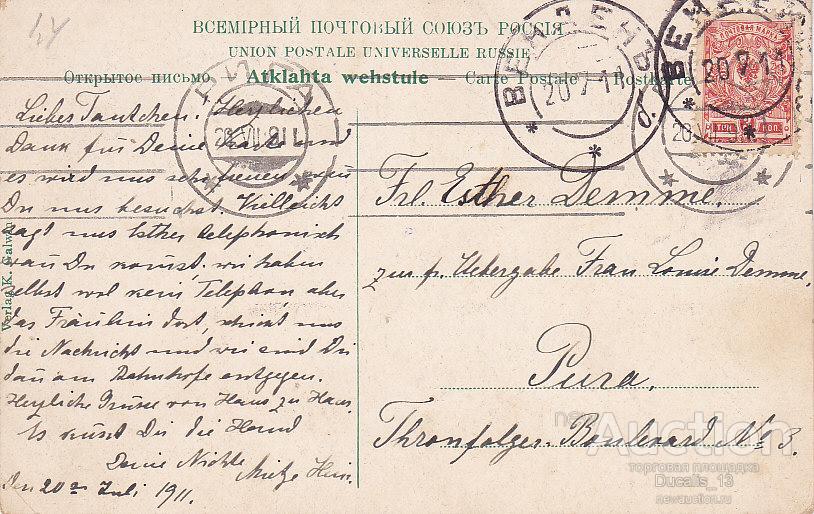 ВСЕМІРНЫЙ ПОЧТОВЫЙ СОЮЗЪ РОССІЯ
UNION POSTALE UNIVERSELLE RUSSIE
Открытое письмо. Atklahta wehstule — Carte Postale — Postkarte
Liebes Tantchen. Herzlichen
Dank für Deine Karte und
es wird uns sehr freuen wen
Du uns besuchst. Vielleicht
sagt uns Esther telephonisch
wan Du komst, wir haben
selbst wol kein Telephon, aber
das Fräulein dort, schickt uns
die Nachricht und wir sind Dir
dan am Bahnhofe entgegen.
Herzliche Grüsse von Haus zu Haus.
Es küsst Dir die Hand
Deine Nichte
den 20ten Juli 1911.
Verlag K. Galwin
Frl. Esther Demme.
zur fr. Uebergabe Frau Louise Demme,
Thronfolger Boulevard № 3.
ВЕНДЕНЪ
20 7 11
ВЕНДЕНЪ
20 7 11
РИГА
КОП.
newAuction
торговая площадка
Ducalis_13
newauction.ru